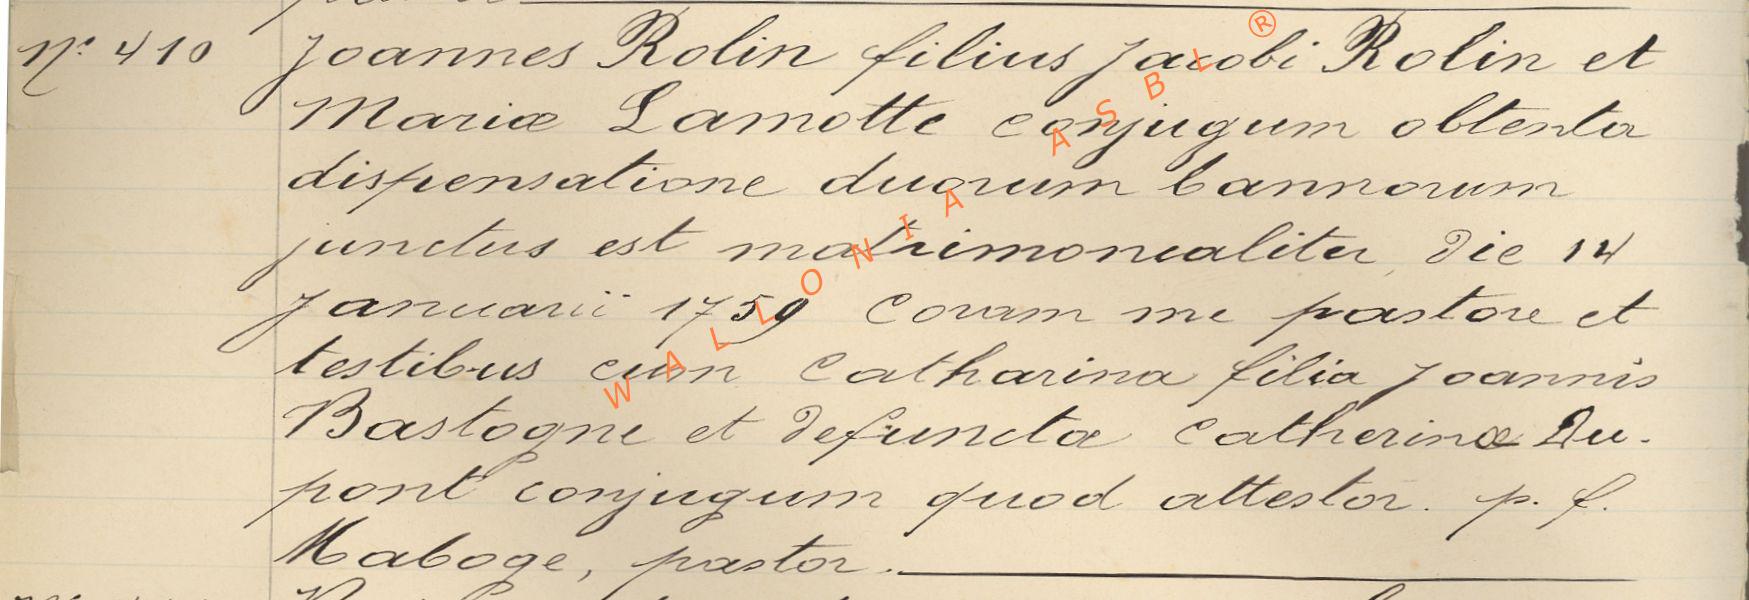 N.° 410 Joannes Rolin filius Jacobi Rolin et
Mariæ Lamotte conjugum obtenta
dispensatione duorum bannorum
junctus est matrimonialiter, die 14
Januarii 1759 coram me pastore et
testibus cum Catharina filia Joannis
Bastogne et defunctæ Catherinæ Du-
pont conjugum quod attestor. p. f.
Maboge, pastor.
WALLONIA ASBL ®